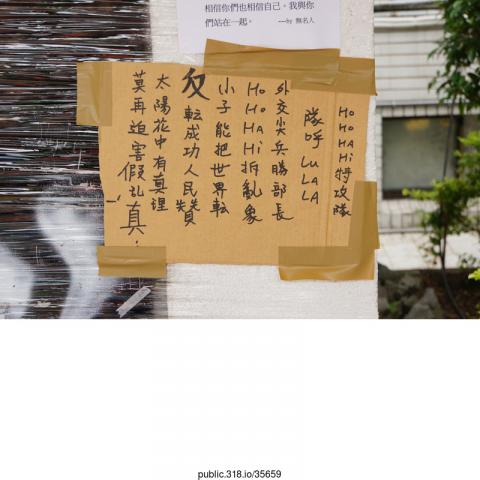 相信你們也相信自己。我與你
們站在一起。 ---by 無名人
Ho Ho HA Hi 特攻隊
隊呼 LU LA LA
外交尖兵勝部長
Ho Ho HA Hi 拆亂象
小子能把世界転
反転成功人民贊
太陽花中有真理
莫再迫害假乱真!
public.318.io/35659